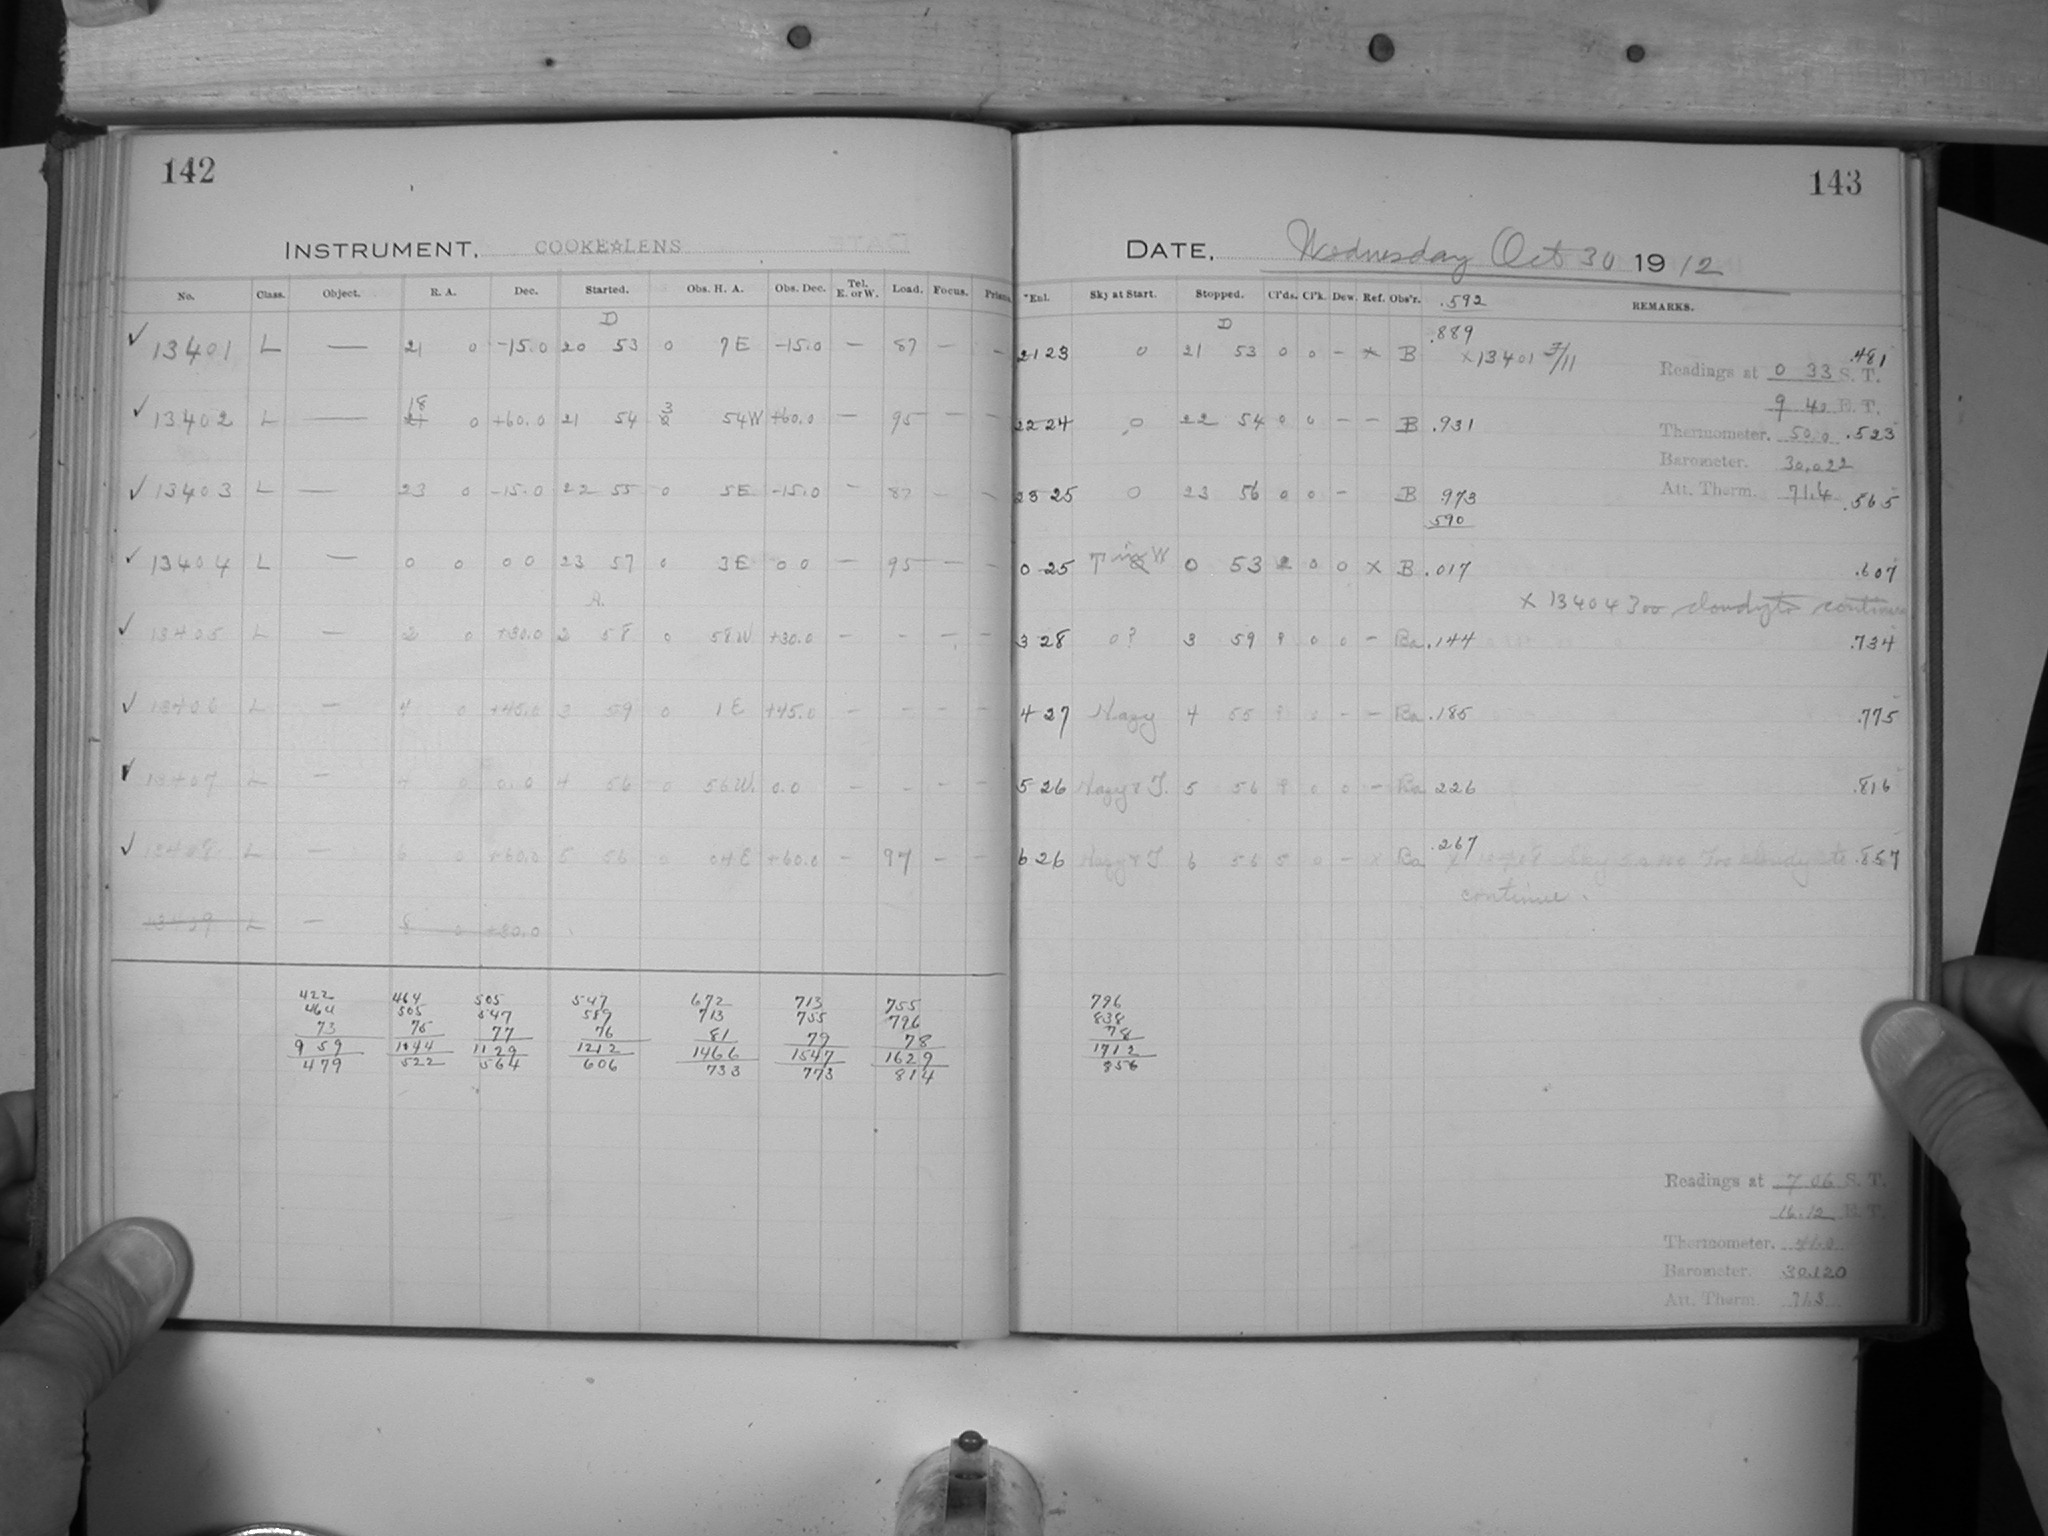 142
INSTRUMENT. COOKE☆LENS
No. Class. Object. R. A. Dec. Started. Obs. H. A. Obs. Dec. Tel. E. or W. Load. Focus. Prism.
D
✓ 13401 L — 21 0 -15.0 20 53 0 7E -15.0 — 87 — —
18 3
✓ 13402 L — 21 0 +60.0 21 54 2 54W +60.0 — 95 — —
✓ 13403 L — 23 0 -15.0 22 55 0 5E -15.0 — 87 — —
✓ 13404 L — 0 0 0 0 23 57 0 3E 0 0 — 95 — —
A.
✓ 13405 L — 2 0 +30.0 2 58 0 58W +30.0 — — — —
✓ 13406 L — 4 0 +45.0 3 59 0 1E +45.0 — — — —
✓ 13407 L — 4 0 0.0 4 56 0 56W. 0.0 — — — —
✓ 13408 L — 6 0 +60.0 5 56 0 04E +60.0 — 97 — —
13409 L — 8 0 +30.0
422 464 505 547 672 713 755
464 505 547 589 713 755 796
73 75 77 76 81 79 78
959 1044 1129 1212 1466 1547 1629
479 522 564 606 733 773 814
143
DATE. Wednesday Oct 30 1912
*Enl. Sky at Start. Stopped. Cl'ds. Cl'k. Dew. Ref. Obs'r. .592 REMARKS.
D .889
21 23 0 21 53 0 0 — x B x 13401 3/11 .481
Readings at 0 33 S. T.
9 40 E. T.
22 24 0 22 54 0 0 — — B .931
Thermometer. 50.0 .523
Barometer. 30.022
Att. Therm. 71.4 .565
23 25 0 23 56 0 0 — B .973
.590
0 25 T in W 0 53 2 0 0 x B .017 .607
x 13404 Too cloudy to continue
3 28 0? 3 59 ? 0 0 — Ba .144 .734
4 27 Hazy 4 55 ? 0 — — Ba .185 .775
5 26 Hazy & T. 5 56 ? 0 0 — Ba .226 .816
6 26 Hazy & T 6 56 5 0 — x Ba .267 x 13408 Too cloudy to .857
continue.
796
838
78
1712
856
Readings at 7 06 S. T.
16.12 E. T.
Thermometer.
Barometer. 30.120
Att. Therm.